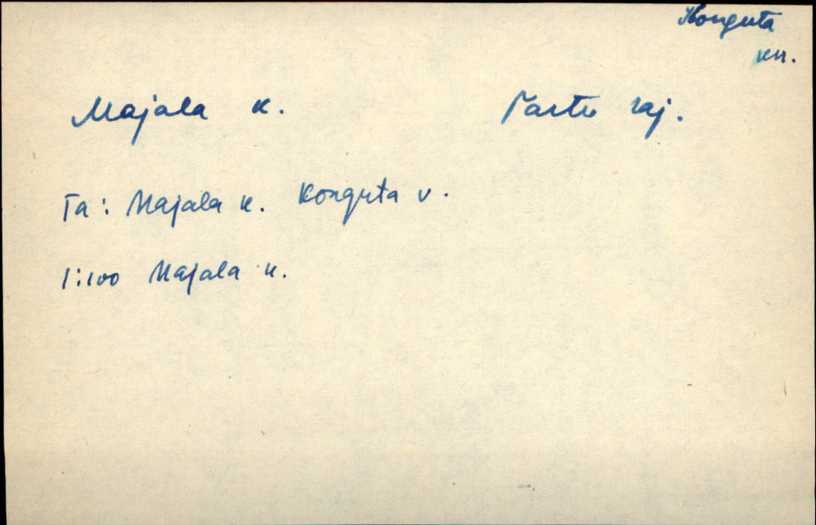 Konguta
kn.
Majala k. Tartu raj.
Ta: Majala k. Konguta v.
1:100 Majala k.